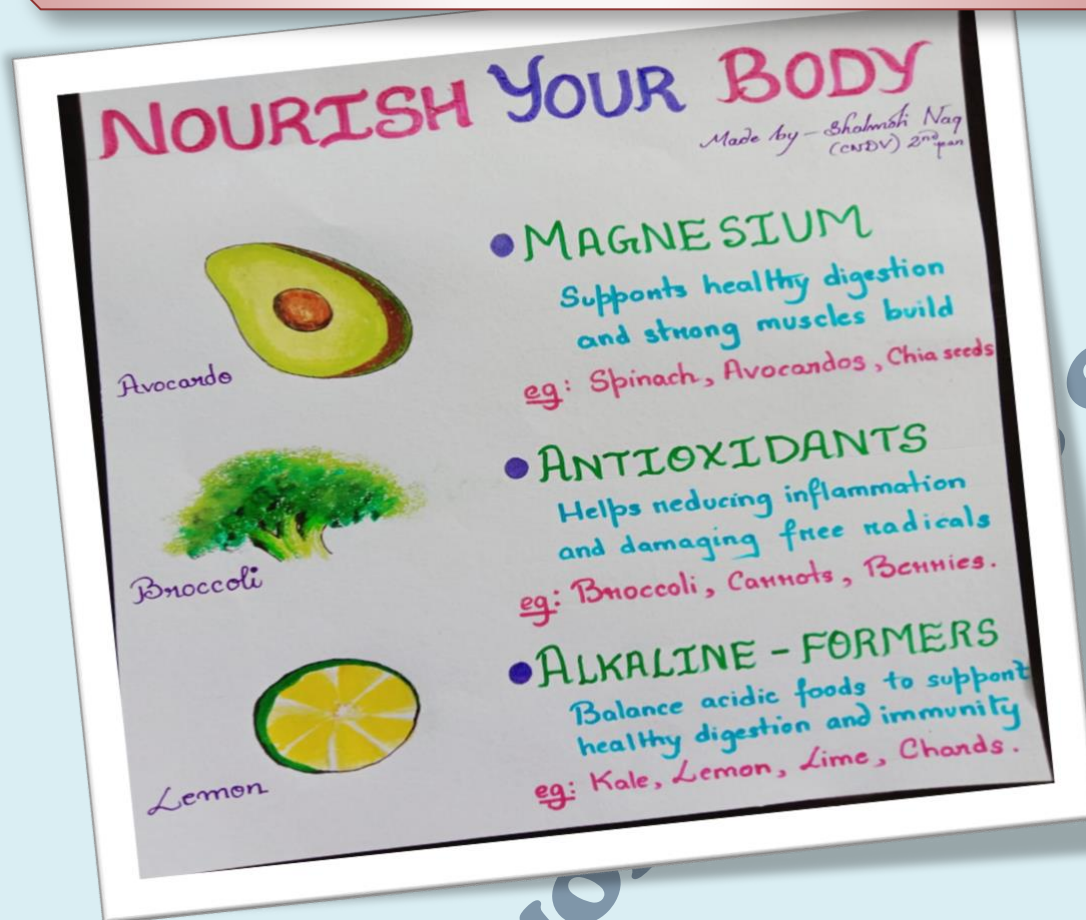 NOURISH YOUR BODY
Made by - Shalmoli Nag
(CNDV) 2nd year
Avocardo
• MAGNESIUM
Supports healthy digestion
and strong muscles build
eg: Spinach, Avocardos, Chia seeds
Broccoli
• ANTIOXIDANTS
Helps reducing inflammation
and damaging free radicals
eg: Broccoli, Carrots, Berries.
Lemon
• ALKALINE - FORMERS
Balance acidic foods to support
healthy digestion and immunity
eg: Kale, Lemon, Lime, Chards.